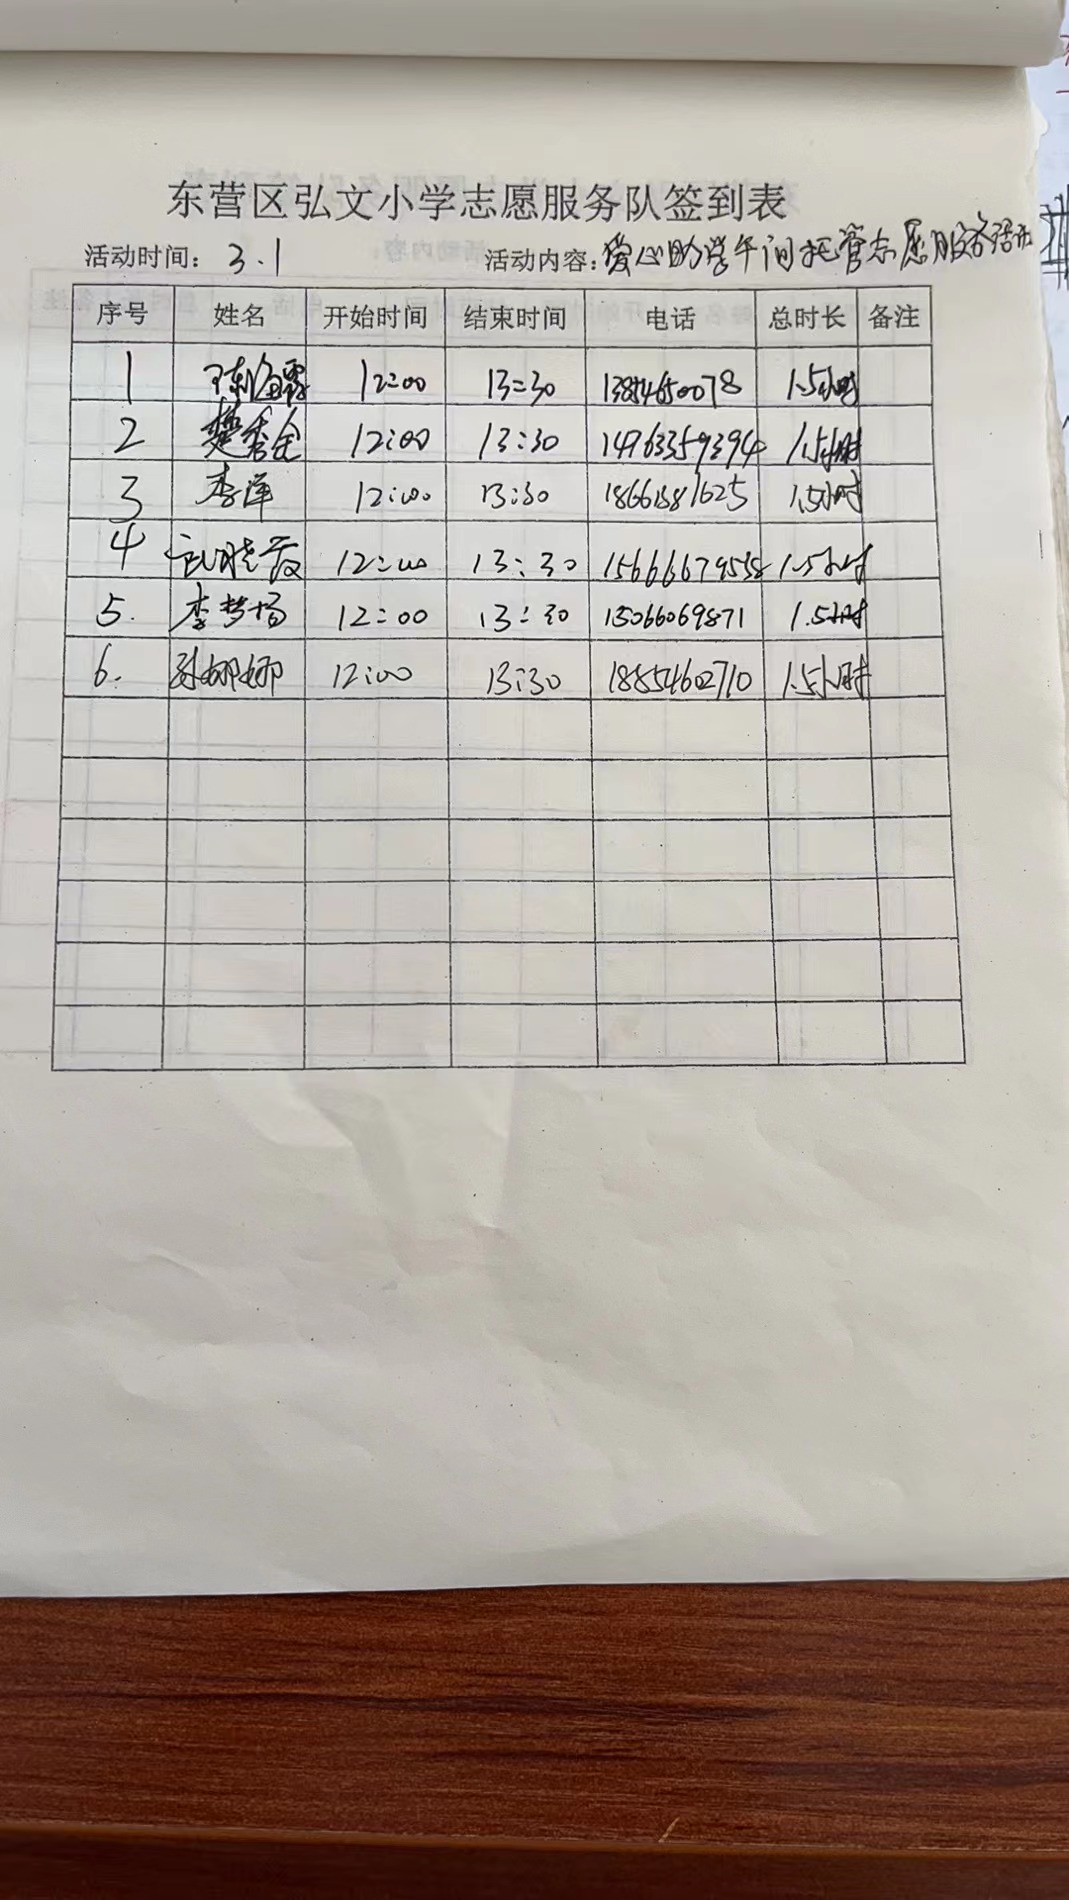 东营区弘文小学志愿服务队签到表
活动时间：3.1 活动内容：爱心助学午间托管志愿服务活动
序号 姓名 开始时间 结束时间 电话 总时长 备注
1 陈海霞 12:00 13:30 13854650078 1.5小时
2 楚秀全 12:00 13:30 1.5小时
3 李洋 12:00 13:30 1.5小时
4 12:00 13:30 1.5小时
5. 李梦杨 12:00 13:30 15066069871 1.5小时
6. 孙娜娜 12:00 13:30 18854602710 1.5小时